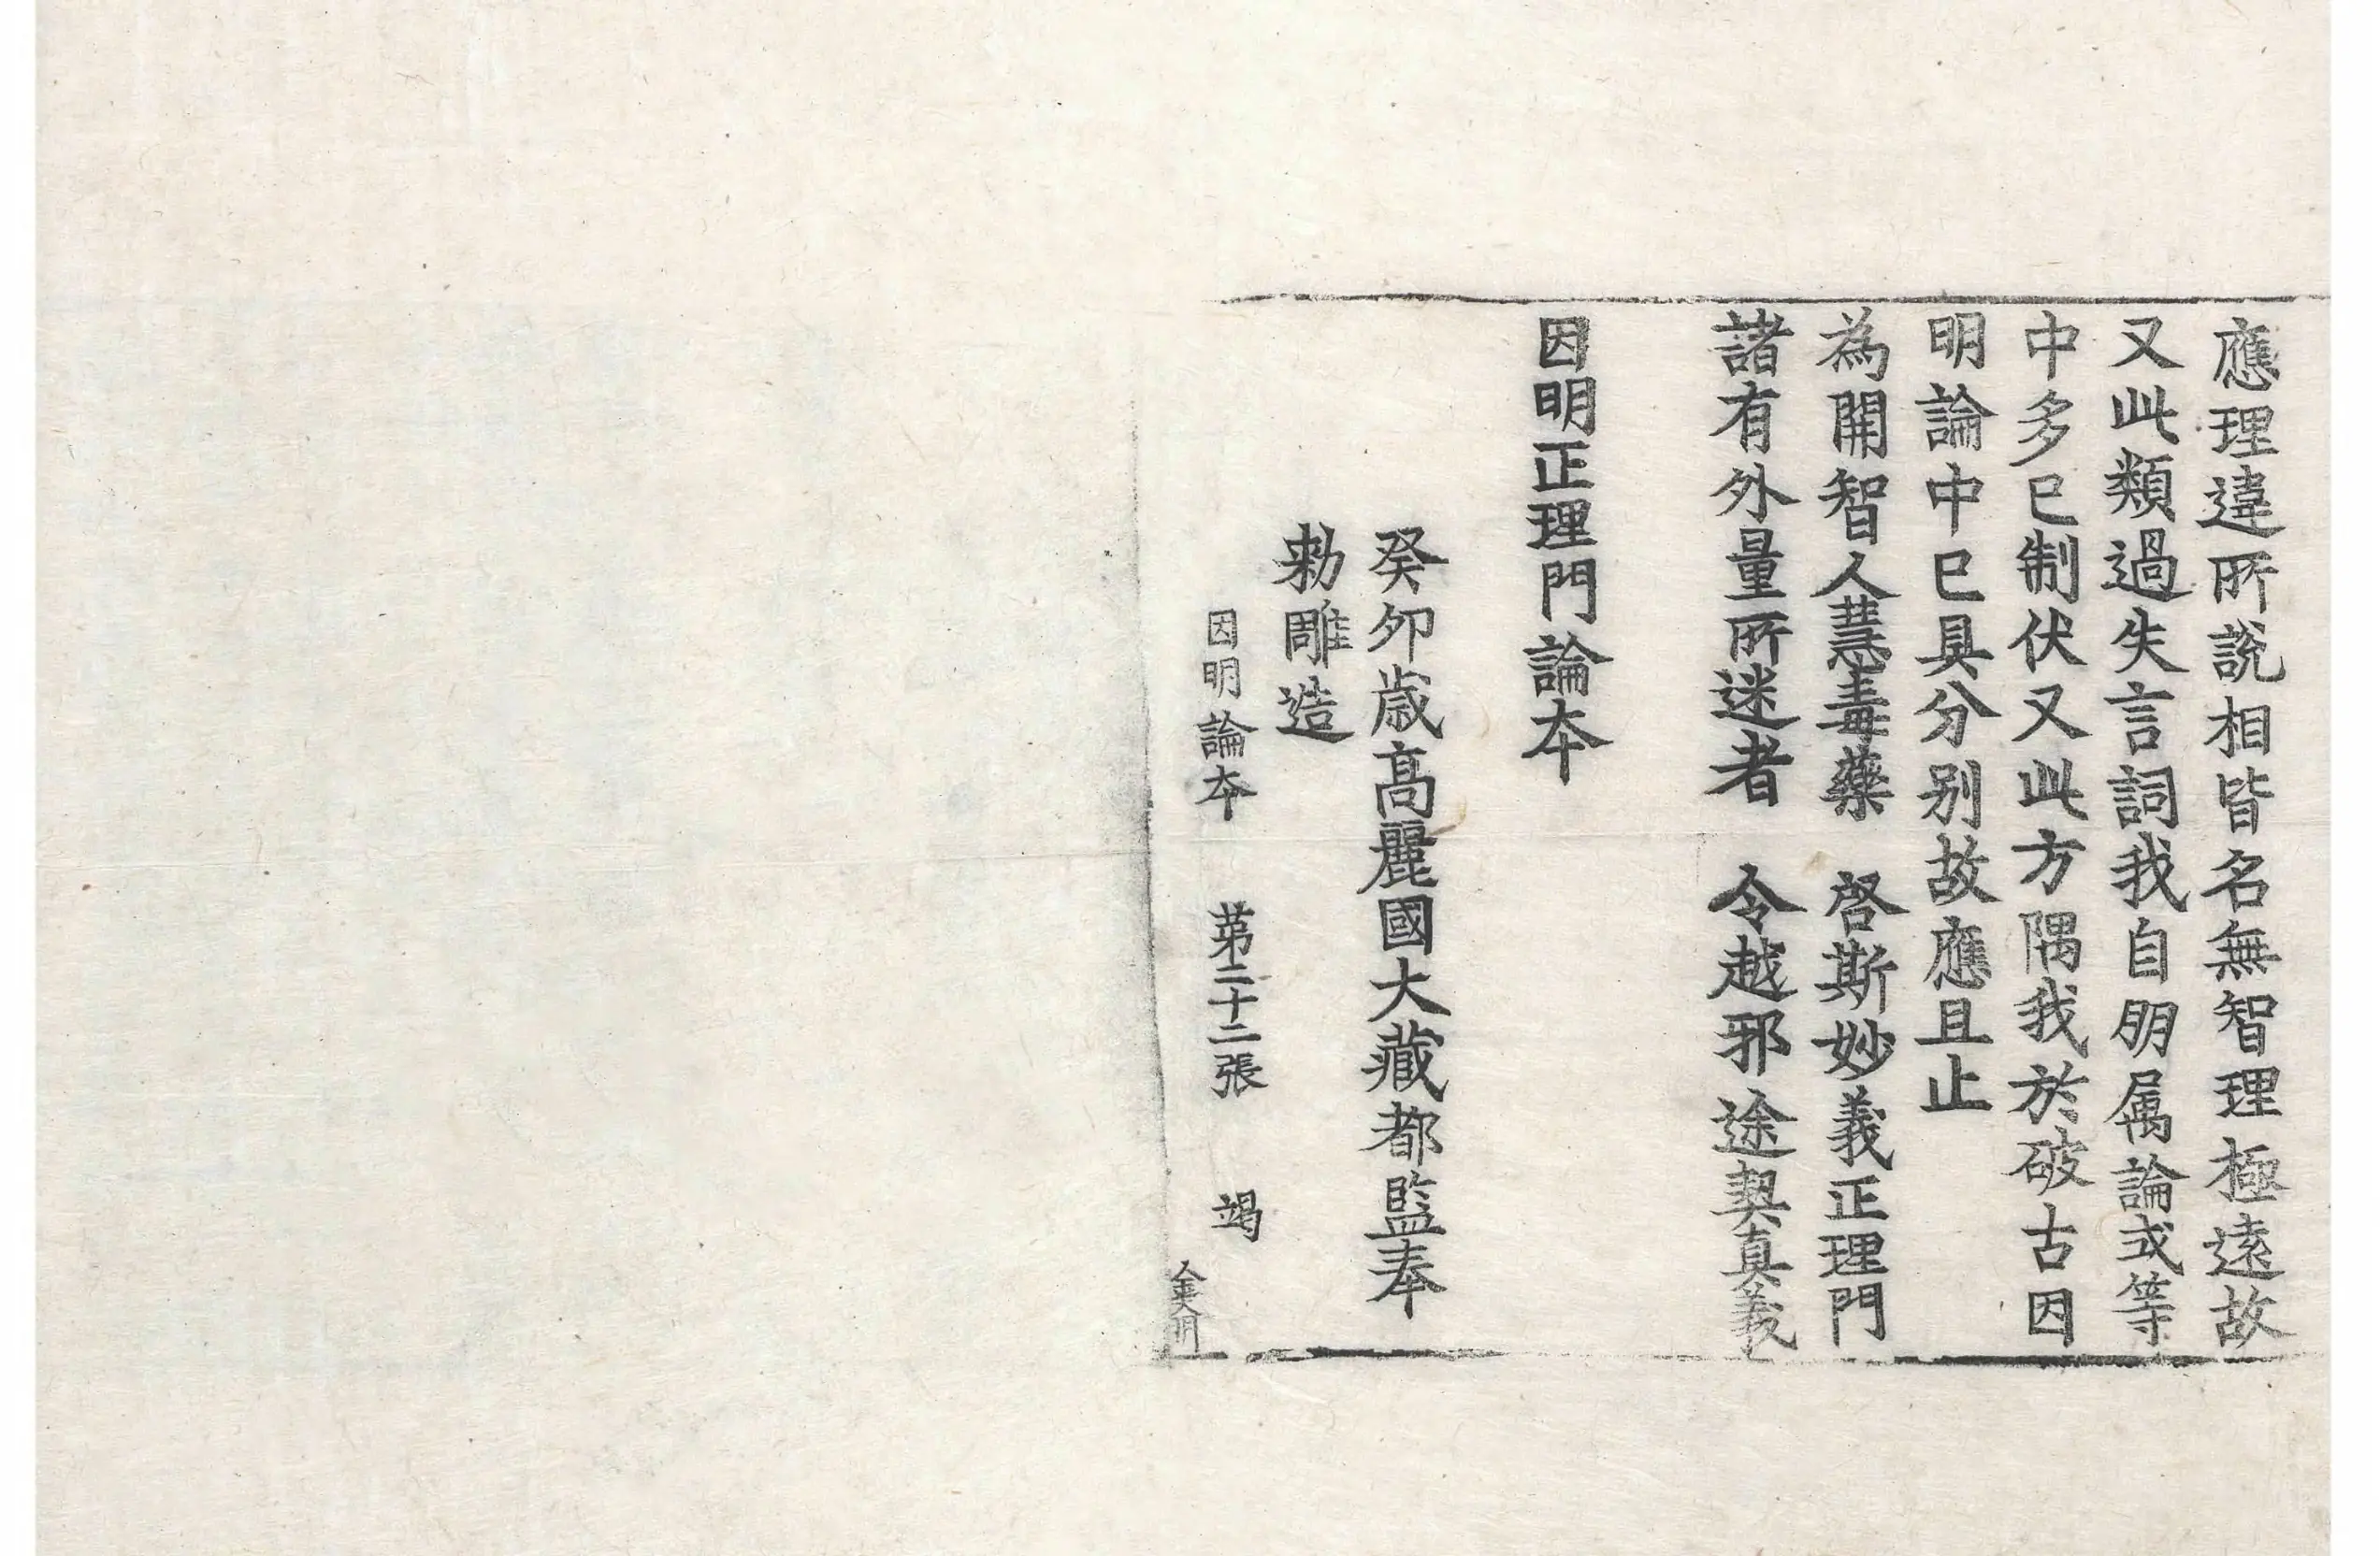 應理違所說相皆名無智理極遠故
又此類過失言詞我自朋属論或等
中多已制伏又此方隅我於破古因
明論中已具分别故應且止
為開智人慧毒藥　啓斯妙義正理門
諸有外量所迷者　令越邪途契真義
因明正理門論夲
癸卯歲髙麗國大藏都監奉
勑雕造
因明論夲　第二十二張　竭